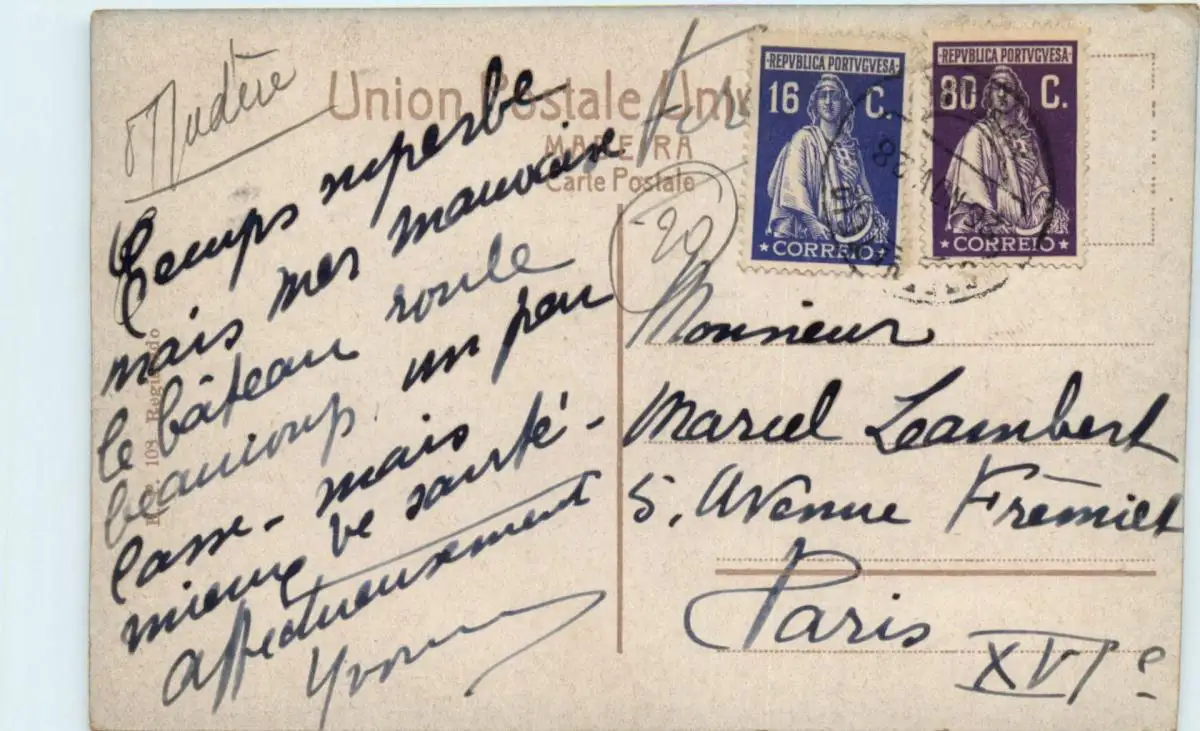 Madère
Union Postale Univ
MADEIRA
Carte Postale
Temps superbe
mais mer mauvaise
le bâteau roule
beaucoup. un peu
lasse - mais
mieux de santé -
affectueusement
20
REPVBLICA PORTVGVESA
16 C.
CORREIO
REPVBLICA PORTVGVESA
80 C.
CORREIO
Monsieur
Marcel Lambert
5, Avenue Frémiet
Paris
XVIe